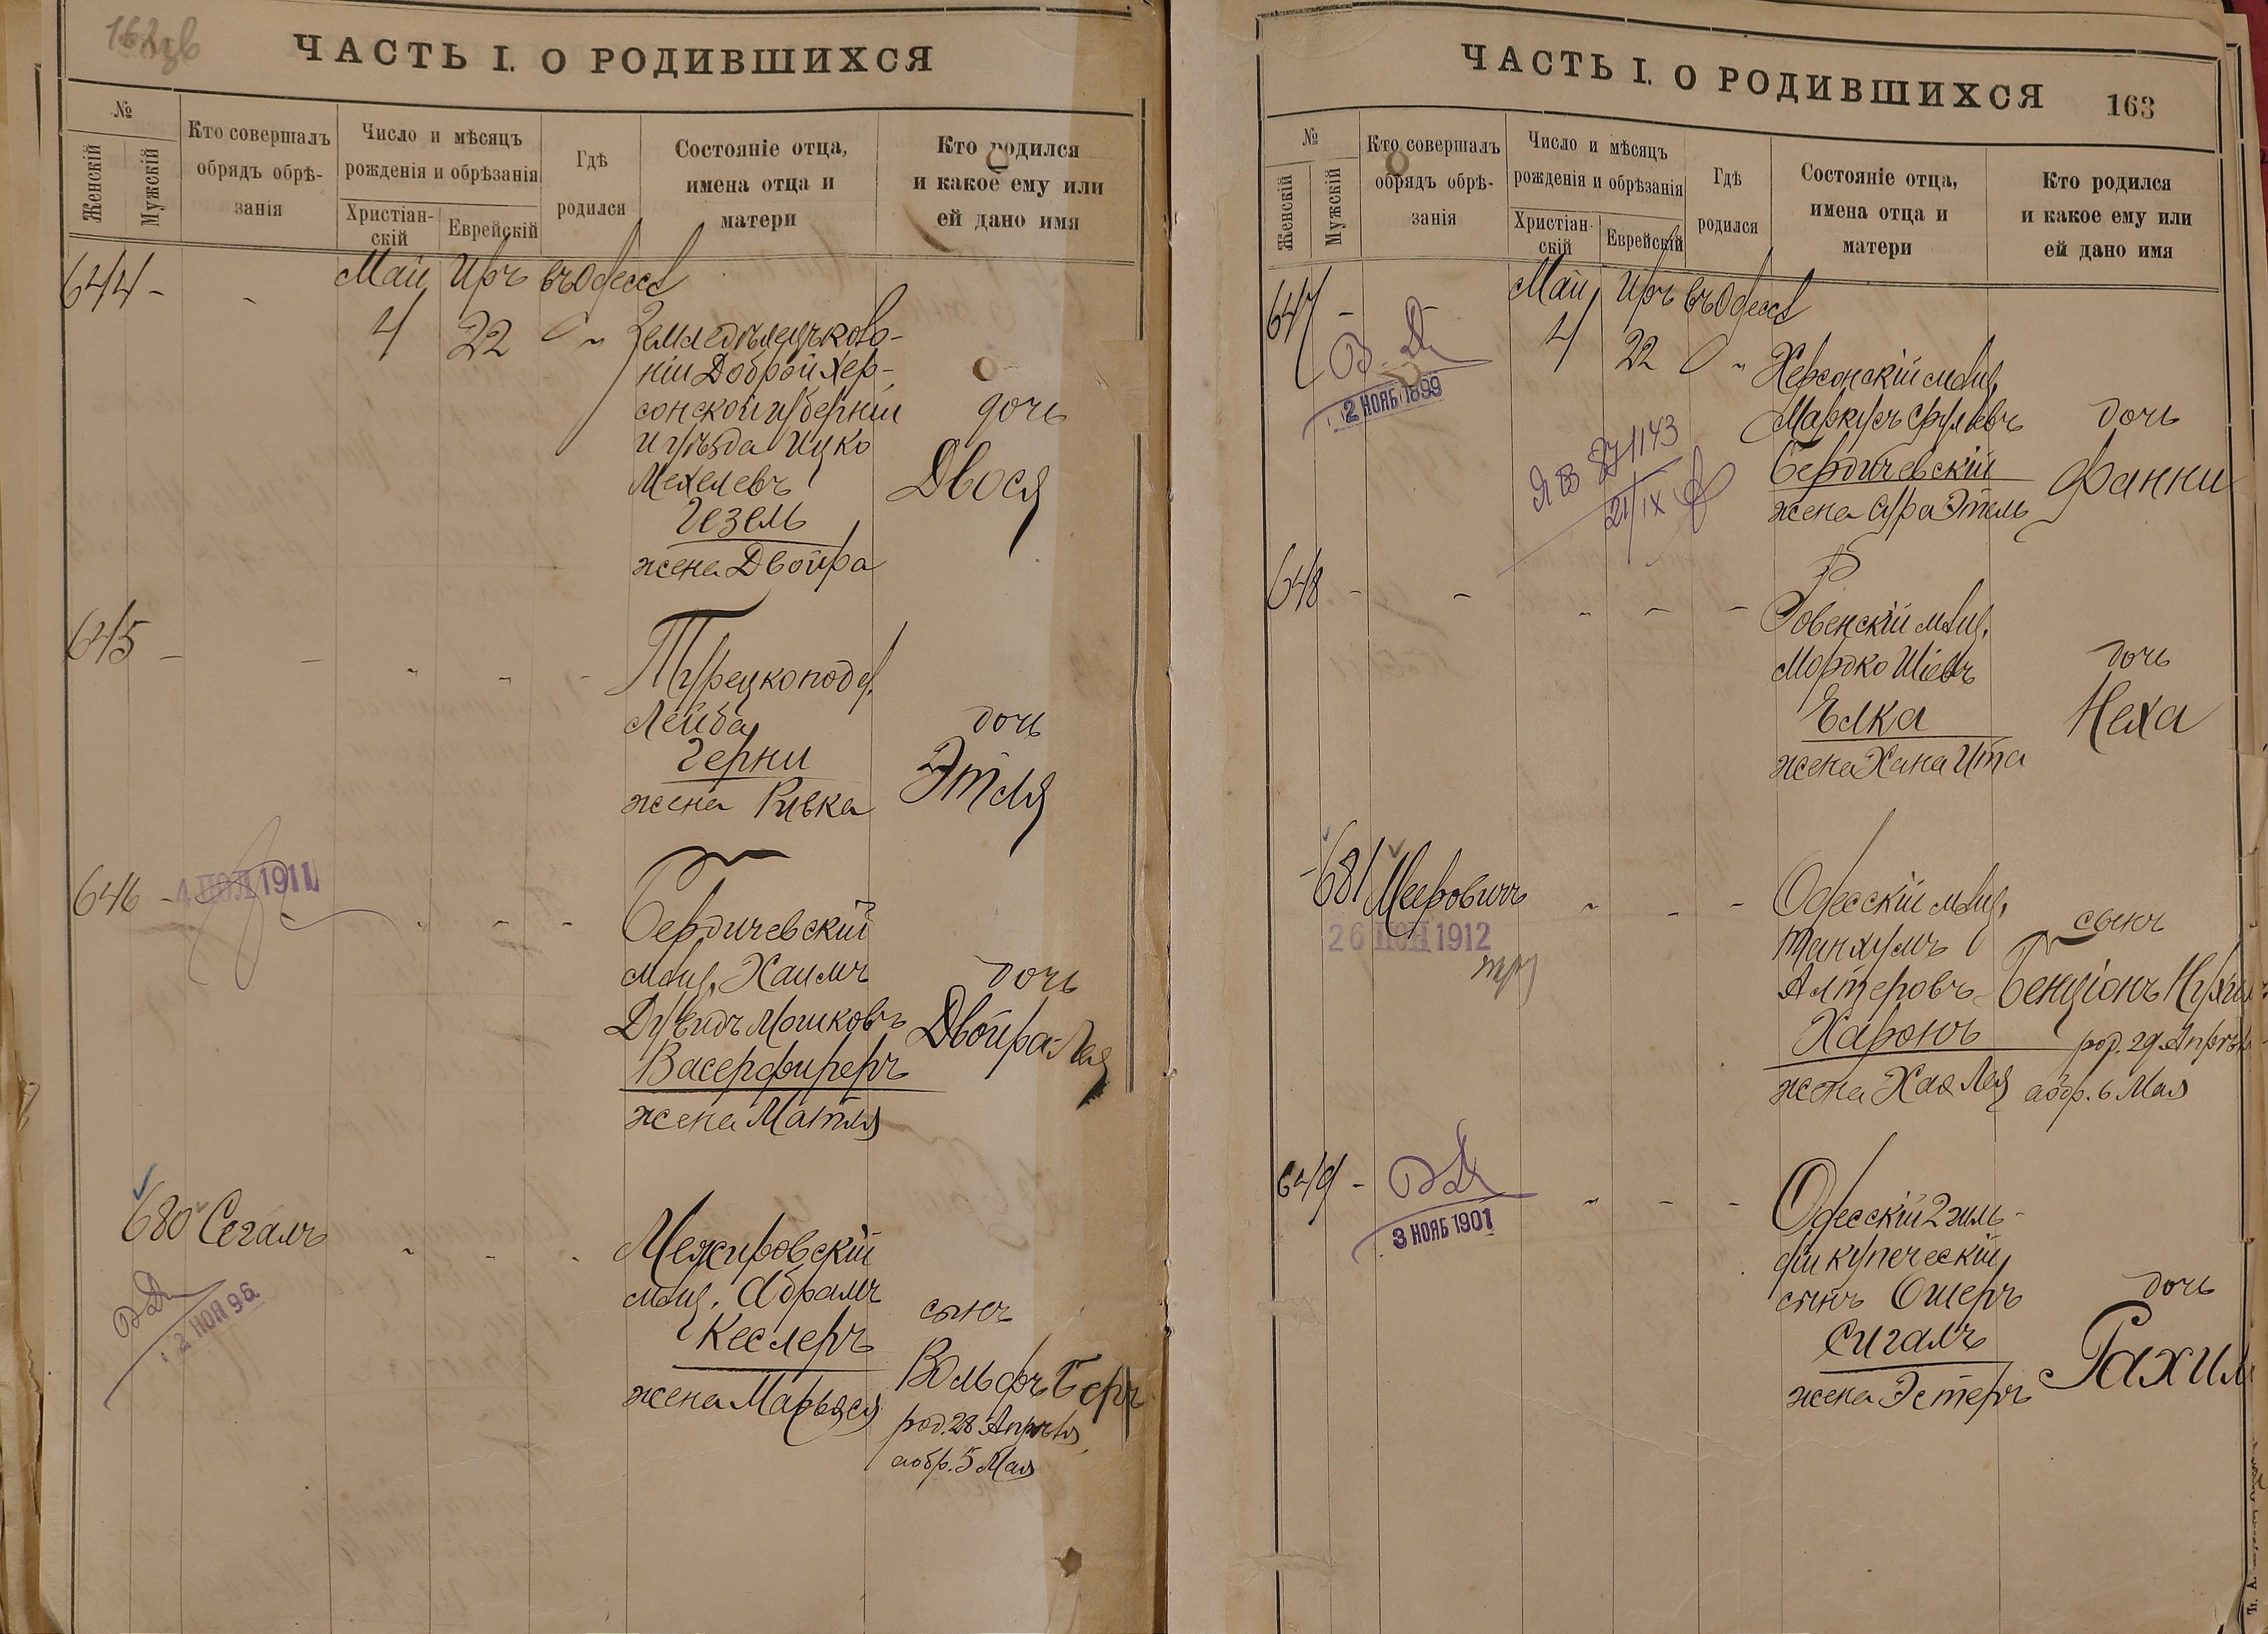 162 об
ЧАСТЬ I. О РОДИВШИХСЯ
№
Женскій
Мужскій
Кто совершалъ
обрядъ обрѣ-
занія
Число и мѣсяцъ
рожденія и обрѣзанія
Христіан-
скій
Еврейскій
Гдѣ
родился
Состояніе отца,
имена отца и
матери
Кто родился
и какое ему или
ей дано имя
644 - - Май Иръ въ Одессѣ
4 22
Земледѣлецъ коло-
ніи Доброй Хер-
сонской губерніи
и уѣзда Ицко
Мехелевъ
Гезель
жена Двойра
дочь
Двося
645 - - " " -
Турецкоподд.
Лейба
Герни
жена Ривка
дочь
Этля
646 - 4 ИЮЛ 1911 " - -
Бердичевскій
мѣщ. Хаимъ
Дувидъ Мошковъ
Васерфиреръ
жена Матля
дочь
Двойра-Лея
680 Сегалъ " - -
2 ИЮН 96
Межировскій
мѣщ. Абрамъ
Кеслеръ
жена Марьяся
сынъ
Вольфъ Беръ
род. 28 Апрѣля
а обр. 5 Мая
ЧАСТЬ I. О РОДИВШИХСЯ
163
№
Женскій
Мужскій
Кто совершалъ
обрядъ обрѣ-
занія
Число и мѣсяцъ
рожденія и обрѣзанія
Христіан-
скій
Еврейскій
Гдѣ
родился
Состояніе отца,
имена отца и
матери
Кто родился
и какое ему или
ей дано имя
647 - Май Иръ въ Одессѣ
4 22
2 НОЯБ 1899
1143
21/IX
Херсонскій мѣщ.
Маркусъ Срулевъ
Бердичевскій
жена Сура Этель
дочь
Фанни
648 - - " - -
Ровенскій мѣщ.
Мордко Шіевъ
Елка
жена Хана Ита
дочь
Неха
681 Мееровичъ " - -
26 ИЮН 1912
Одесскій мѣщ.
Танхумъ
Алтеровъ
Харонъ
жена Хая Лея
сынъ
Бенціонъ Нухим
род. 29 Апрѣля
а обр. 6 Мая
649 - " - -
3 НОЯБ 1901
Одесскій 2 гиль-
діи купеческій
сынъ Ошеръ
Сигалъ
жена Эстеръ
дочь
Рахил